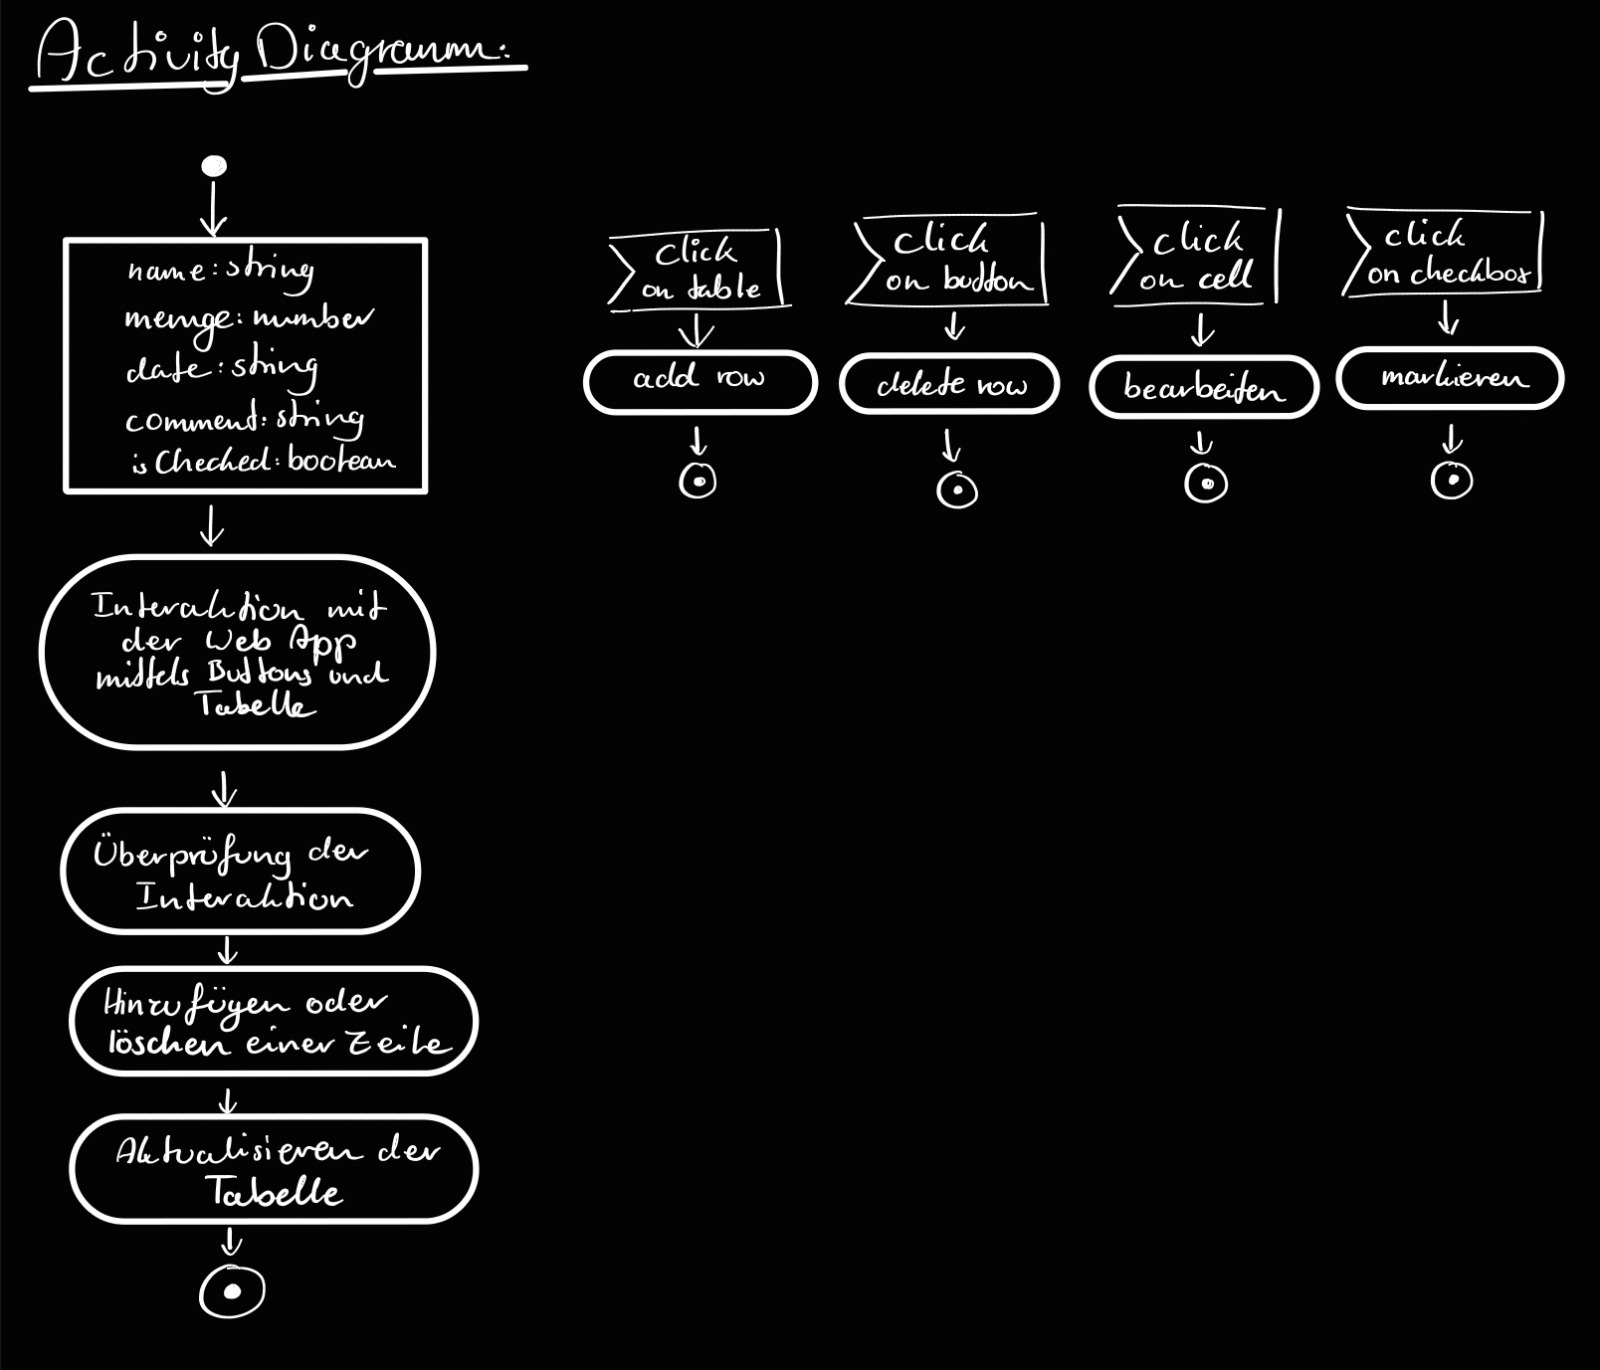 Activity Diagramm:
name: string
menge: number
date: string
comment: string
isChecked: boolean
Interaktion mit
der Web App
mittels Buttons und
Tabelle
Überprüfung der
Interaktion
Hinzufügen oder
löschen einer Zeile
Aktualisieren der
Tabelle
click
on table
add row
click
on button
delete row
click
on cell
bearbeiten
click
on checkbox
markieren